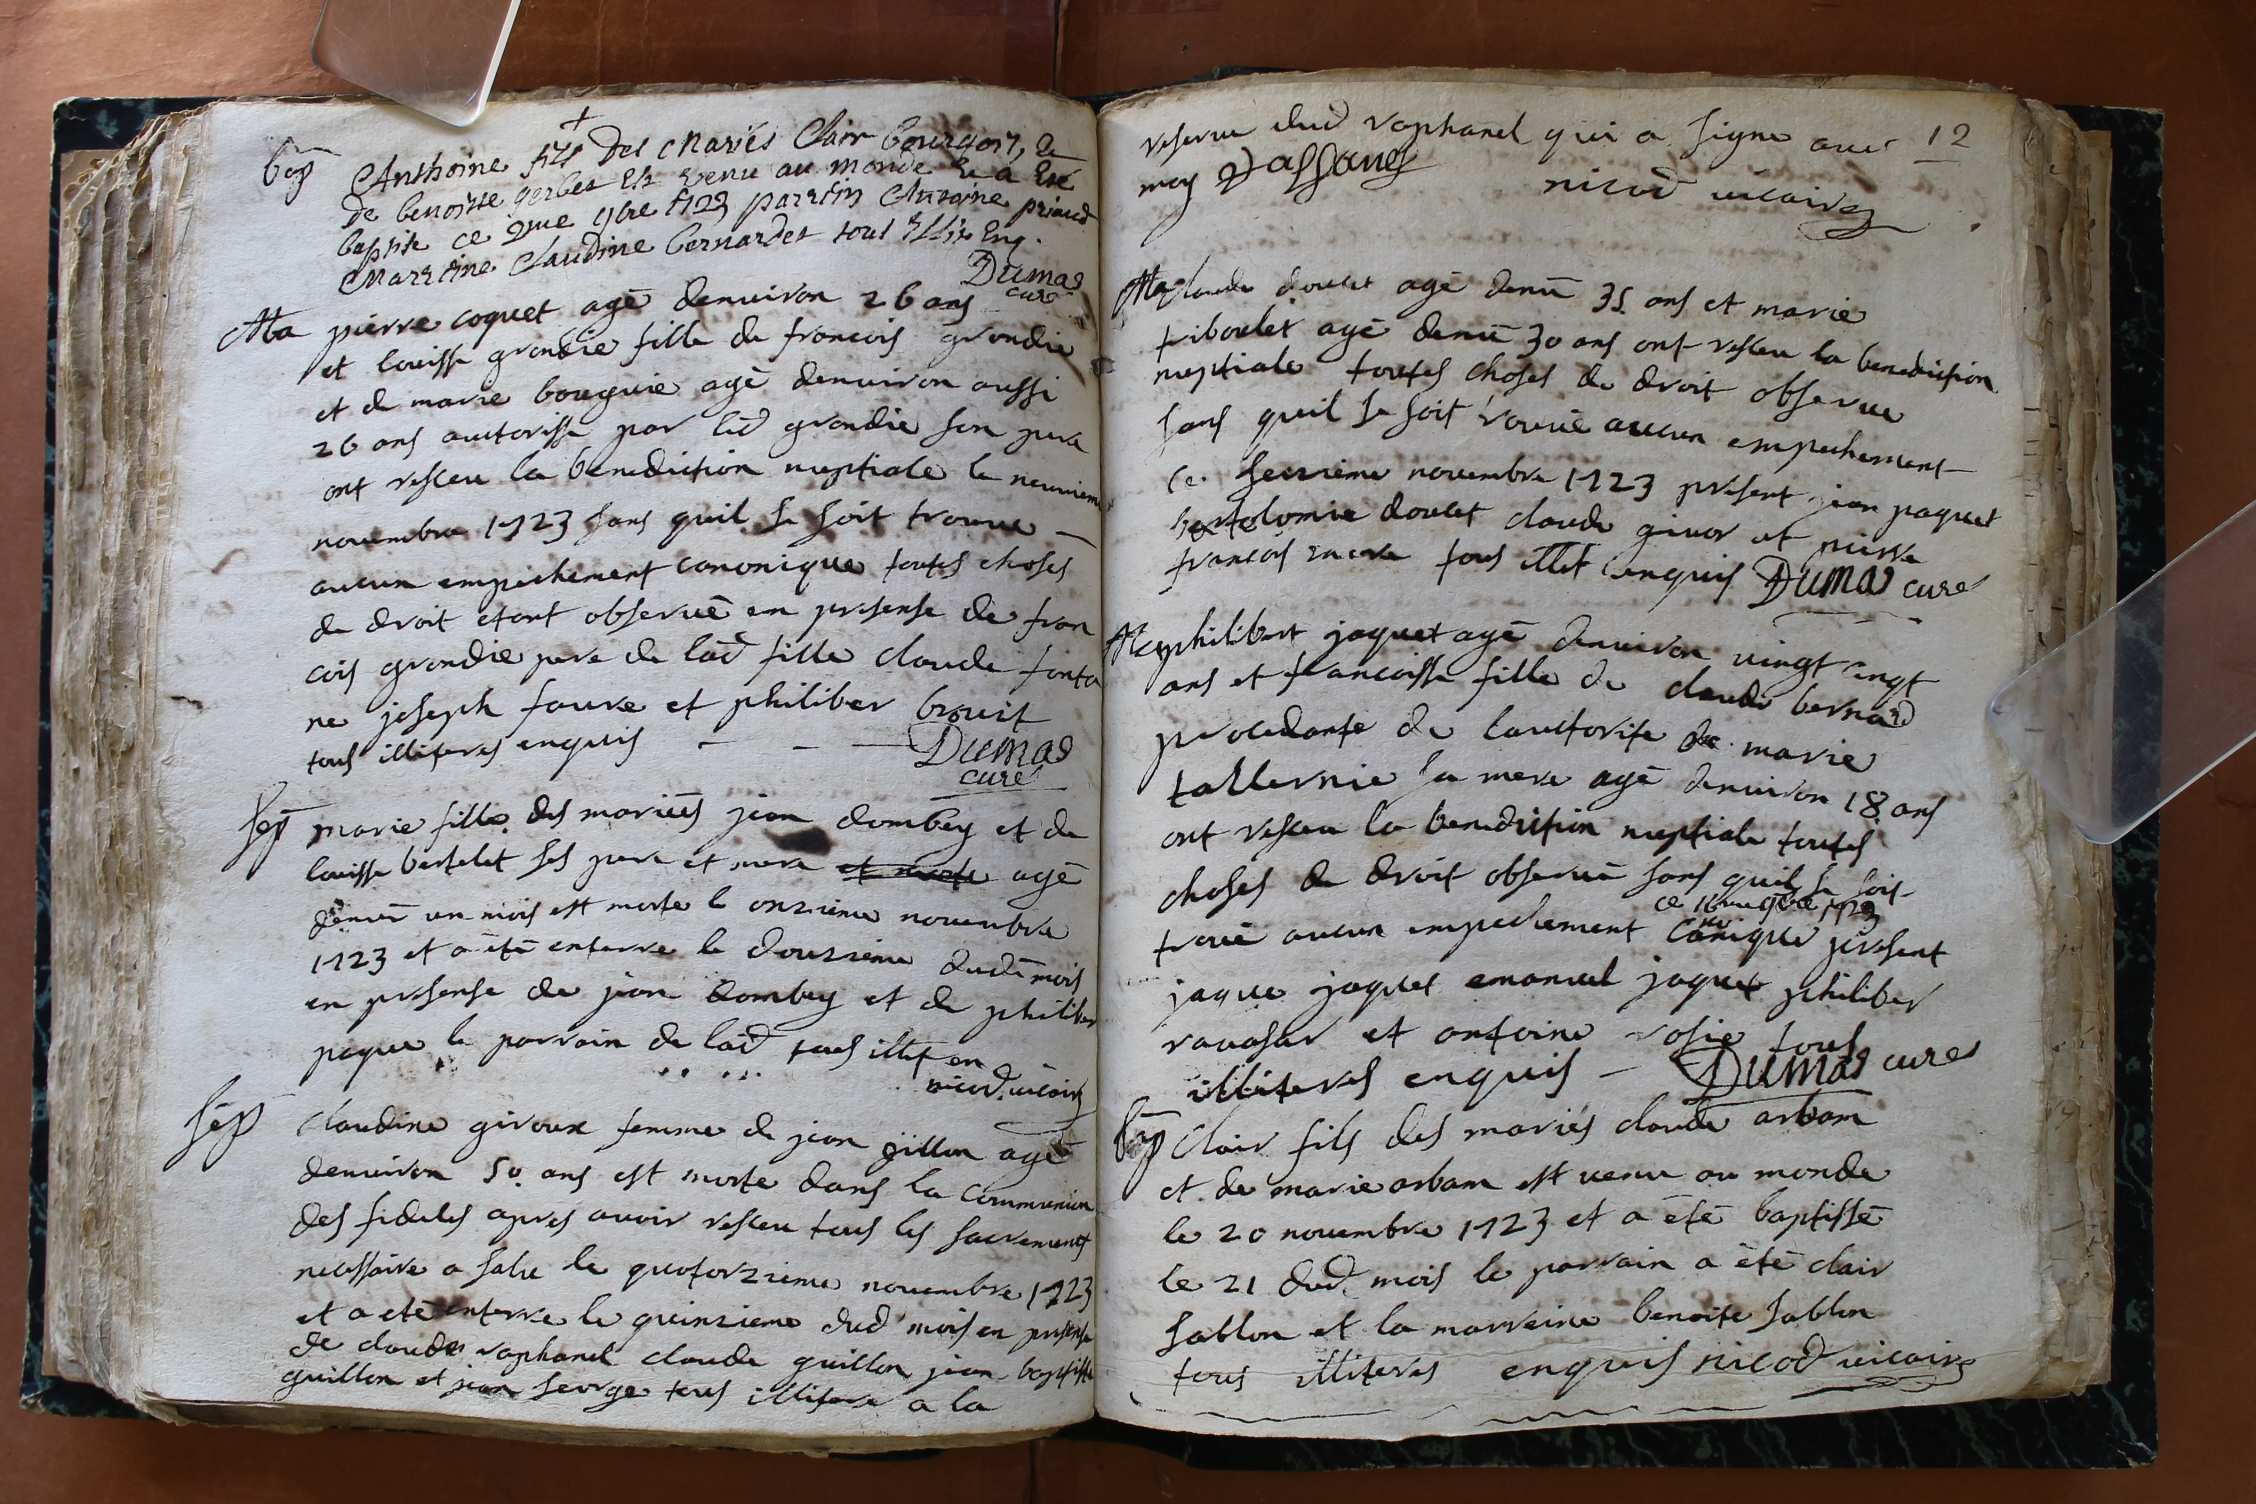 bap
Anthoine fils des Mariés Clair bourgon, &
de benoitte gerbet Est venu au monde Et a Esté
baptise ce 9me 9bre 1723 parrin Antoine priaud
Marrine Claudine bernardet tous Illit Enq.
Dumas
curé
Ma pierre coquet agē denuiron 26 ans
et louisse grondie fille de francois grondie
et de marie bouguie agē denuiron aussi
26 ans auctorisse par led grondie son pere
ont resceu la benediction nuptiale le neuuieme
nouembre 1723 sans quil se soit trouue
aucun empechement canonique toutes choses
de droit etant obseruē en presense de fran
cois grondie pere de lad fille claude fonta
ne joseph foure et philiber brouit
tous illiteres enquis
Dumas
curé
sep marie fille des mariēs jean dombey et de
louisse bertelet ses pere et mere et morte agē
denuē un mois est morte le onzieme nouembre
1723 et a ētē enterre le douzieme dudē mois
en presense de jean dombey et de philiber
paque le parrain de lad tous illit en
nicod uicaire
sep claudine giroux femme de jean gillon agē
denuiron 50 ans est morte dans la communion
des fideles apres auoir resceu tous les sacrements
necessaire a salu le quatorzieme nouembre 1723
et a etē enterre le quinzieme dud mois en presense
de claude raphanel claude guillon jean baptiste
guillon et jean serge tous illitere a la
12
reserue dud raphanel qui a signe auec
moy
nicod uicaire
Ma claude doucet agē denuē 35 ans et marie
triboulet agē denuē 30 ans ont resceu la benediction
nuptiale toutes choses de droit obserue
sans quil se soit trouuē aucun empechement
le seizieme nouembre 1723 present jean paquet
bertelomie doucet claude giuor et pierre
francois tous illit enquis Dumas curé
Ma philibert jaquet agē denuiron uingt cinqt
ans et francoisse fille de claude bernard
procedante de lauctorite de marie
tallernie sa mere agē denuiron 18 ans
ont resceu la benediction nuptiale toutes
choses de droit obseruē sans quil se soit
ce 16me 9bre 1723
trouē aucun empechement canonique present
jaque jaquet emanuel jaquet philiber
rauasar et antoine rosie tous
illiteres enquis Dumas curé
bap clair fils des mariēs claude arbam
et de marie arbam est uenu au monde
le 20 nouembre 1723 et a ētē baptissē
le 21 dud mois le parrain a ētē clair
sablon et la marreine benoite sablon
tous illiteres enquis nicod uicaire